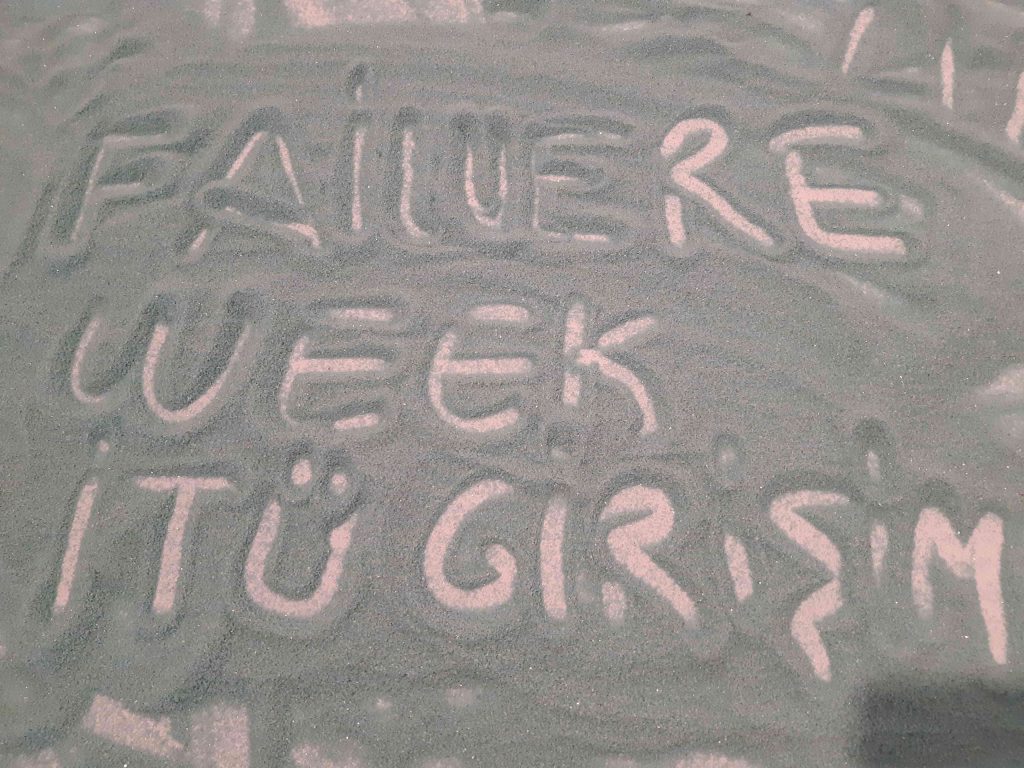 FAİLUERE
WEEK
İTÜ GİRİŞİM